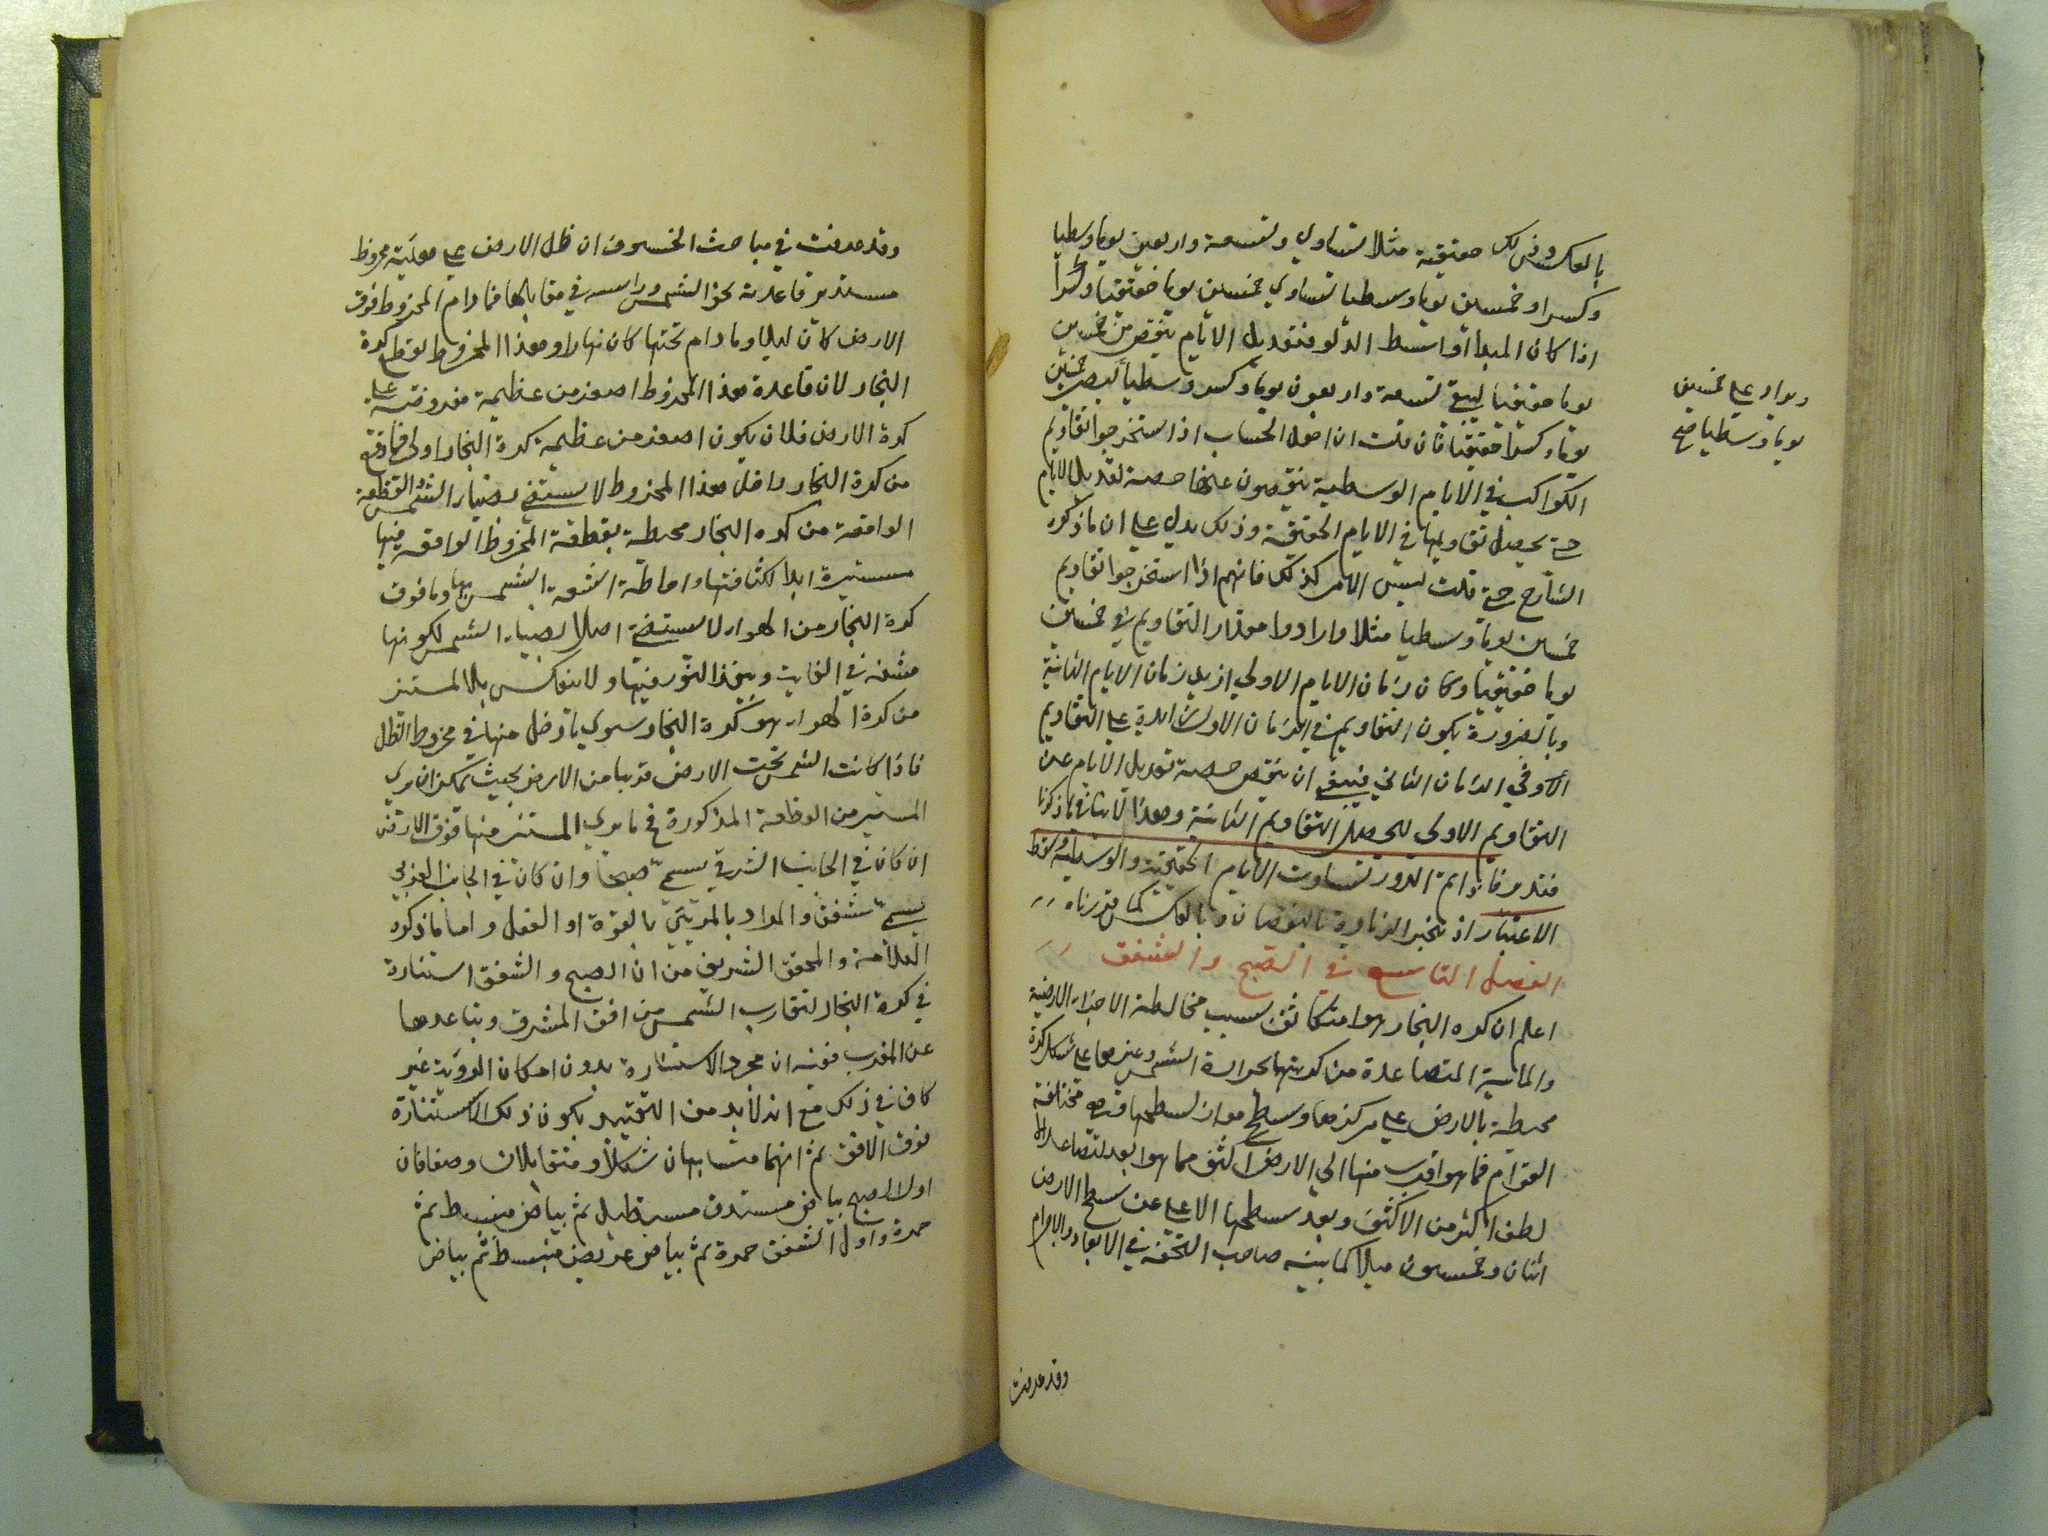 بالعكس وذلك حقيقية مثلا تساوي وتسعة واربعين يوما وسطيا
وكسرا وخمسين يوما وسطيا تساوي خمسين يوما حقيقيا وكسرا
اذا كان المبدأ اواسط الدلو فتعديل الايام ينقص من خمسين
يوما حقيقيا ليبقى تسعة واربعون يوما وكسر وسطيا ليصير خمسين
يوما وكسرا حقيقيا فان قلت ان اهل الحساب اذا استخرجوا تقاويم
الكواكب في الايام الوسطية ينقصون عنها حصة تعديل الايام
حتى يحصل تقاويمها في الايام الحقيقية وذلك يدل على ان ما ذكره
الشارح قلت ليس الامر كذلك فانهم اذا استخرجوا تقاويم
خمسين يوما وسطيا مثلا وارادوا مقدار التقاويم في خمسين
يوما حقيقيا وكان زمان الايام الاولى ازيد من زمان الايام الثانية
وبالضرورة يكون التقاويم في الزمان الاول زائدة على التقاويم
في الزمان الثاني فينبغي ان ينقص حصة تعديل الايام عن
التقاويم الاولى لتحصل التقاويم الثانية وهذا لا ينافي ما ذكرنا
فتدبر فاذا تم الدور تساوت الايام الحقيقية والوسطية وسقط
الاعتبار اذ ينجبر الزيادة بالنقصان وبالعكس كما قررناه
الفصل التاسع في الصبح والشفق
اعلم ان كره البخار هواء متكاثف بسبب مخالطة الاجزاء الارضية
والمائية المتصاعدة من كرتيهما بحرارة الشمس وغيرها على شكل كرة
محيطة بالارض على مركزها وسطح مواز لسطحها وهي مختلفة
القوام فما هو اقرب منها الى الارض اكثف مما هو ابعد لتصاعد
لطف اكثر من الاكثف وبعد سطحها الاعلى عن سطح الارض
اثنان وخمسون ميلا كما بينه صاحب التحفه في الابعاد والاجرام
ويزاد على خمسين
يوما وسطيا صح
وقد عرفت
وقد عرفت في مباحث الخسوف ان ظل الارض على هيئة مخروط
مستدير قاعدته نحو الشمس وراسه في مقابلها فما دام المخروط فوق
الارض كان ليلا وما دام تحتها كان نهارا وهذا المخروط يقطع كرة
البخار لان قاعدة هذا المخروط اصغر من عظيمة مفروضة على
كرة الارض فلان يكون اصغر من عظيمة كرة البخار اولى فما وقع
من كرة البخار داخل هذا المخروط لا يستضئ بضياء الشمس والقطعة
الواقعة من كره البخار محيطة بقطعة المخروط الواقعة فيها
مستنيرة ابدا لكثافتها واحاطة اشعة الشمس بها وما فوق
كرة البخار من الهواء لا يستضئ اصلا بضياء الشمس لكونها
مشفه في الغاية وينفذ النور فيها ولا ينعكس بل المستنير
من كرة الهواء هو كرة البخار سوى ما دخل منها في مخروط الظل
فاذا كانت الشمس تحت الارض قريبا من الارض بحيث يمكن ان يرى
المستنير من القطعة المذكورة فما يرى المستنير منها فوق الارض
ان كان في الجانب الشرقي يسمى صبحا وان كان في الجانب الغربي
يسمى شفقا والمراد بالمرئي بالقوة او الفعل واما ما ذكره
العلامة والمحقق الشريف من ان الصبح والشفق استنارة
في كرة البخار لتقارب الشمس من افق المشرق وتباعدها
عن المغرب ففيه ان مجرد الاستنارة بدون امكان الروية غير
كاف في ذلك مع انه لا بد من التقييد بكون ذلك الاستنارة
فوق الافق ثم انهما متشابهان شكلا ومتقابلان وضعا فان
اول الصبح بياض مستدق مستطيل ثم بياض منبسط ثم
حمرة واول الشفق حمرة ثم بياض عريض منبسط ثم بياض